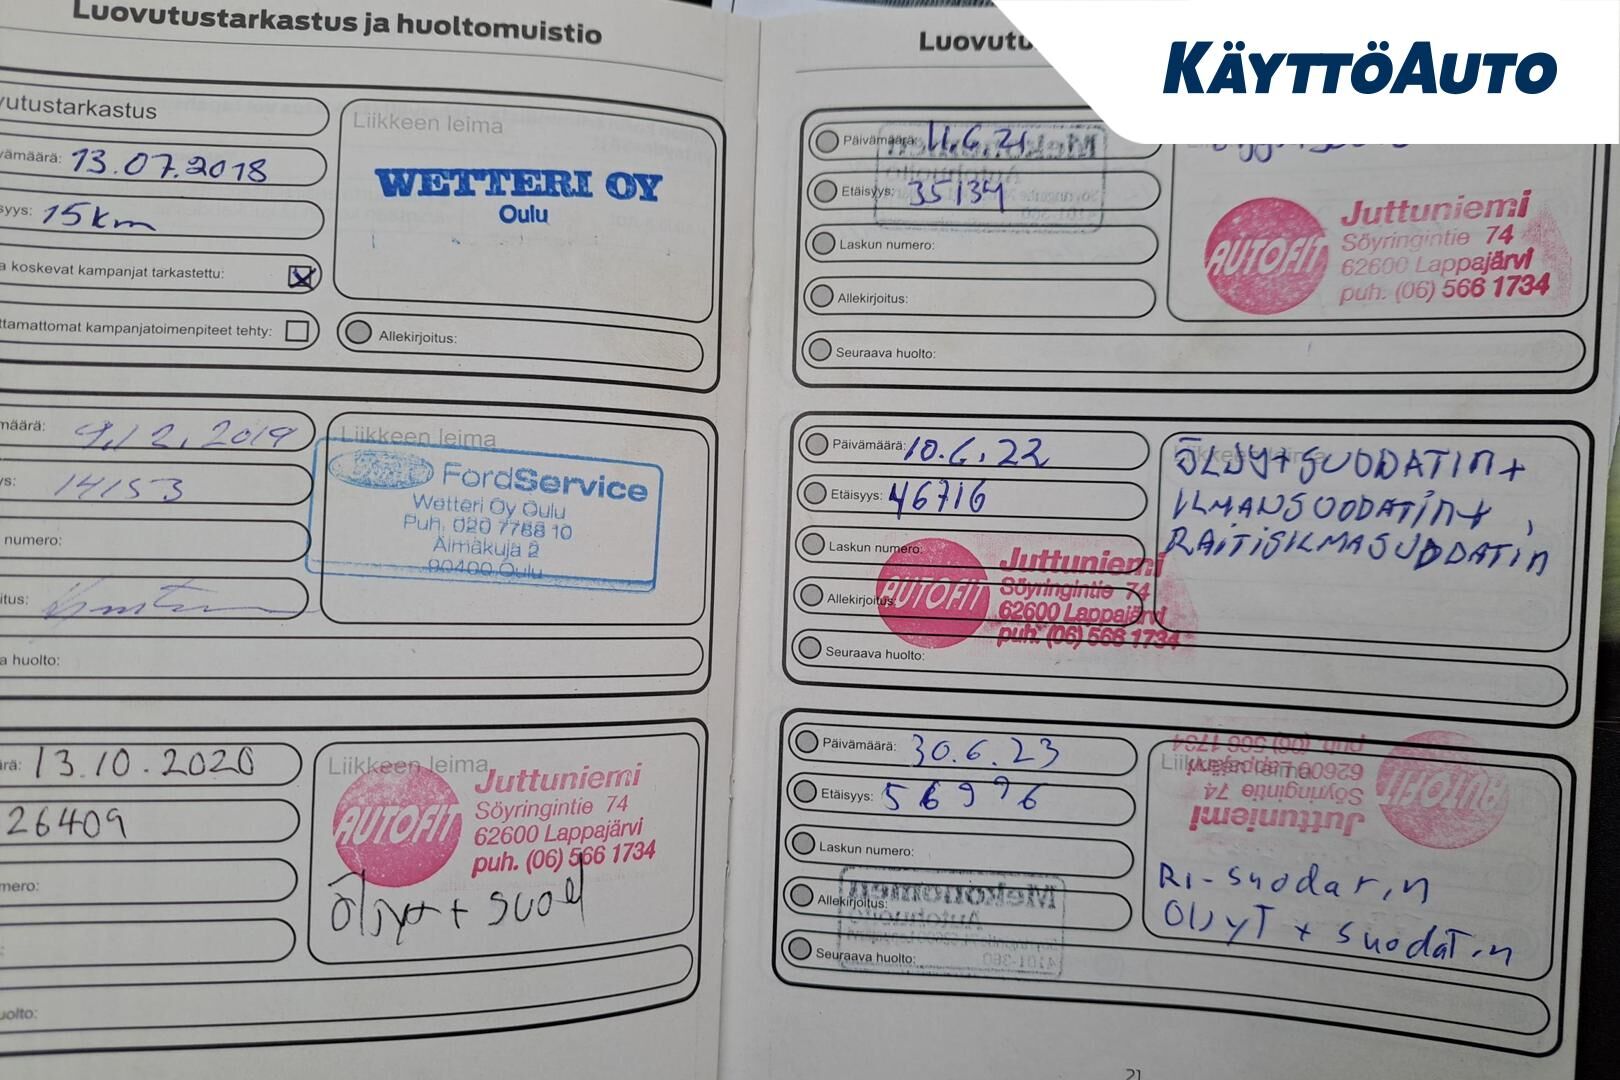 Luovutustarkastus ja huoltomuistio
vutustarkastus
ämäärä: 13.07.2018
syys: 15km
a koskevat kampanjat tarkastettu:
ttamattomat kampanjatoimenpiteet tehty:
Liikkeen leima
WETTERI OY
Oulu
Allekirjoitus:
määrä: 9.12.2019
s: 14153
numero:
itus:
a huolto:
Liikkeen leima
FordService
Wetteri Oy Oulu
Puh. 020 7788 10
Äimäkuja 2
90400 Oulu
rä: 13.10.2020
26409
mero:
:
uolto:
Liikkeen leima
AUTOFIT
Juttuniemi
Söyringintie 74
62600 Lappajärvi
puh. (06) 566 1734
Öljyt + suod
Luovutu
KÄYTTÖAUTO
Päivämäärä: 11.6.21
Etäisyys: 35134
Laskun numero:
Allekirjoitus:
Seuraava huolto:
AUTOFIT
Juttuniemi
Söyringintie 74
62600 Lappajärvi
puh. (06) 566 1734
Päivämäärä: 10.6.22
Etäisyys: 46716
Laskun numero:
Allekirjoitus:
Seuraava huolto:
AUTOFIT
Juttuniemi
Söyringintie 74
62600 Lappajärvi
puh. (06) 566 1734
Liikkeen leima
ÖLJY+SUODATIN+
ILMANSUODATIN+
RAITISILMASUODATIN
Päivämäärä: 30.6.23
Etäisyys: 56996
Laskun numero:
Allekirjoitus:
Seuraava huolto:
Mekonomen
Autohuolto
4101-360
Liikkeen leima
AUTOFIT
Juttuniemi
Söyringintie 74
62600 Lappajärvi
puh. (06) 566 1734
Ri-suodatin
ÖljyT + suodatin
21